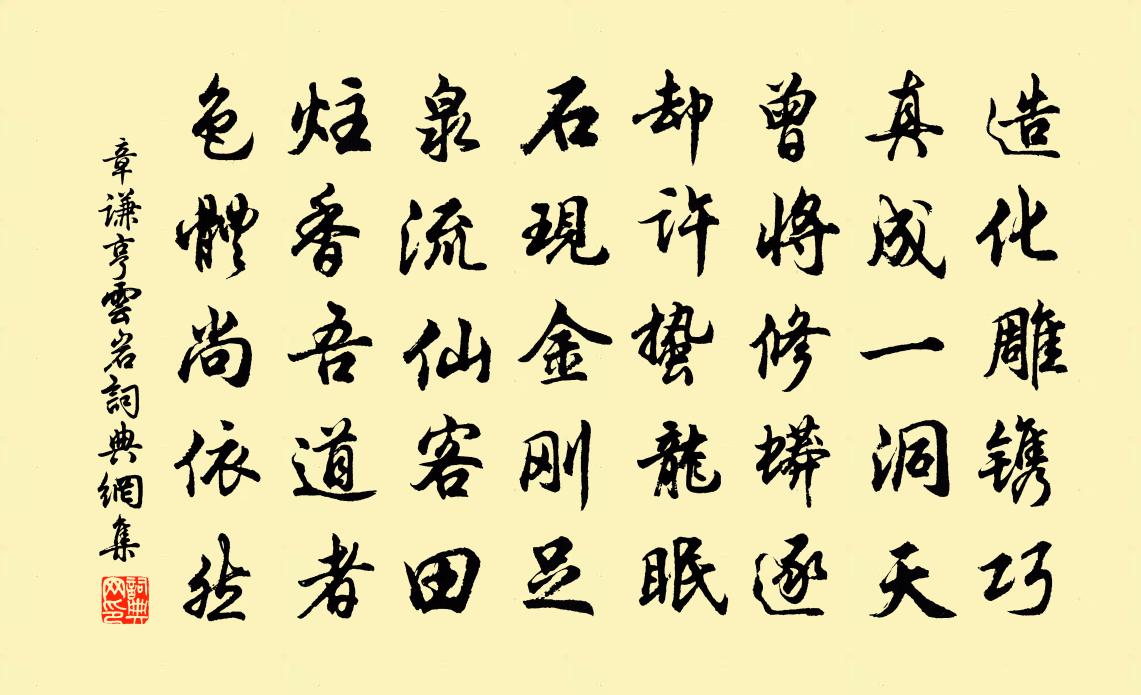 造化雕镌巧
真成一洞天
曾將修蟒逐
却許蟄龍眠
石現金刚足
泉流仙客田
炷香吾道者
色體尚依然
章謙亨雲岩詞典網集
詞典网印